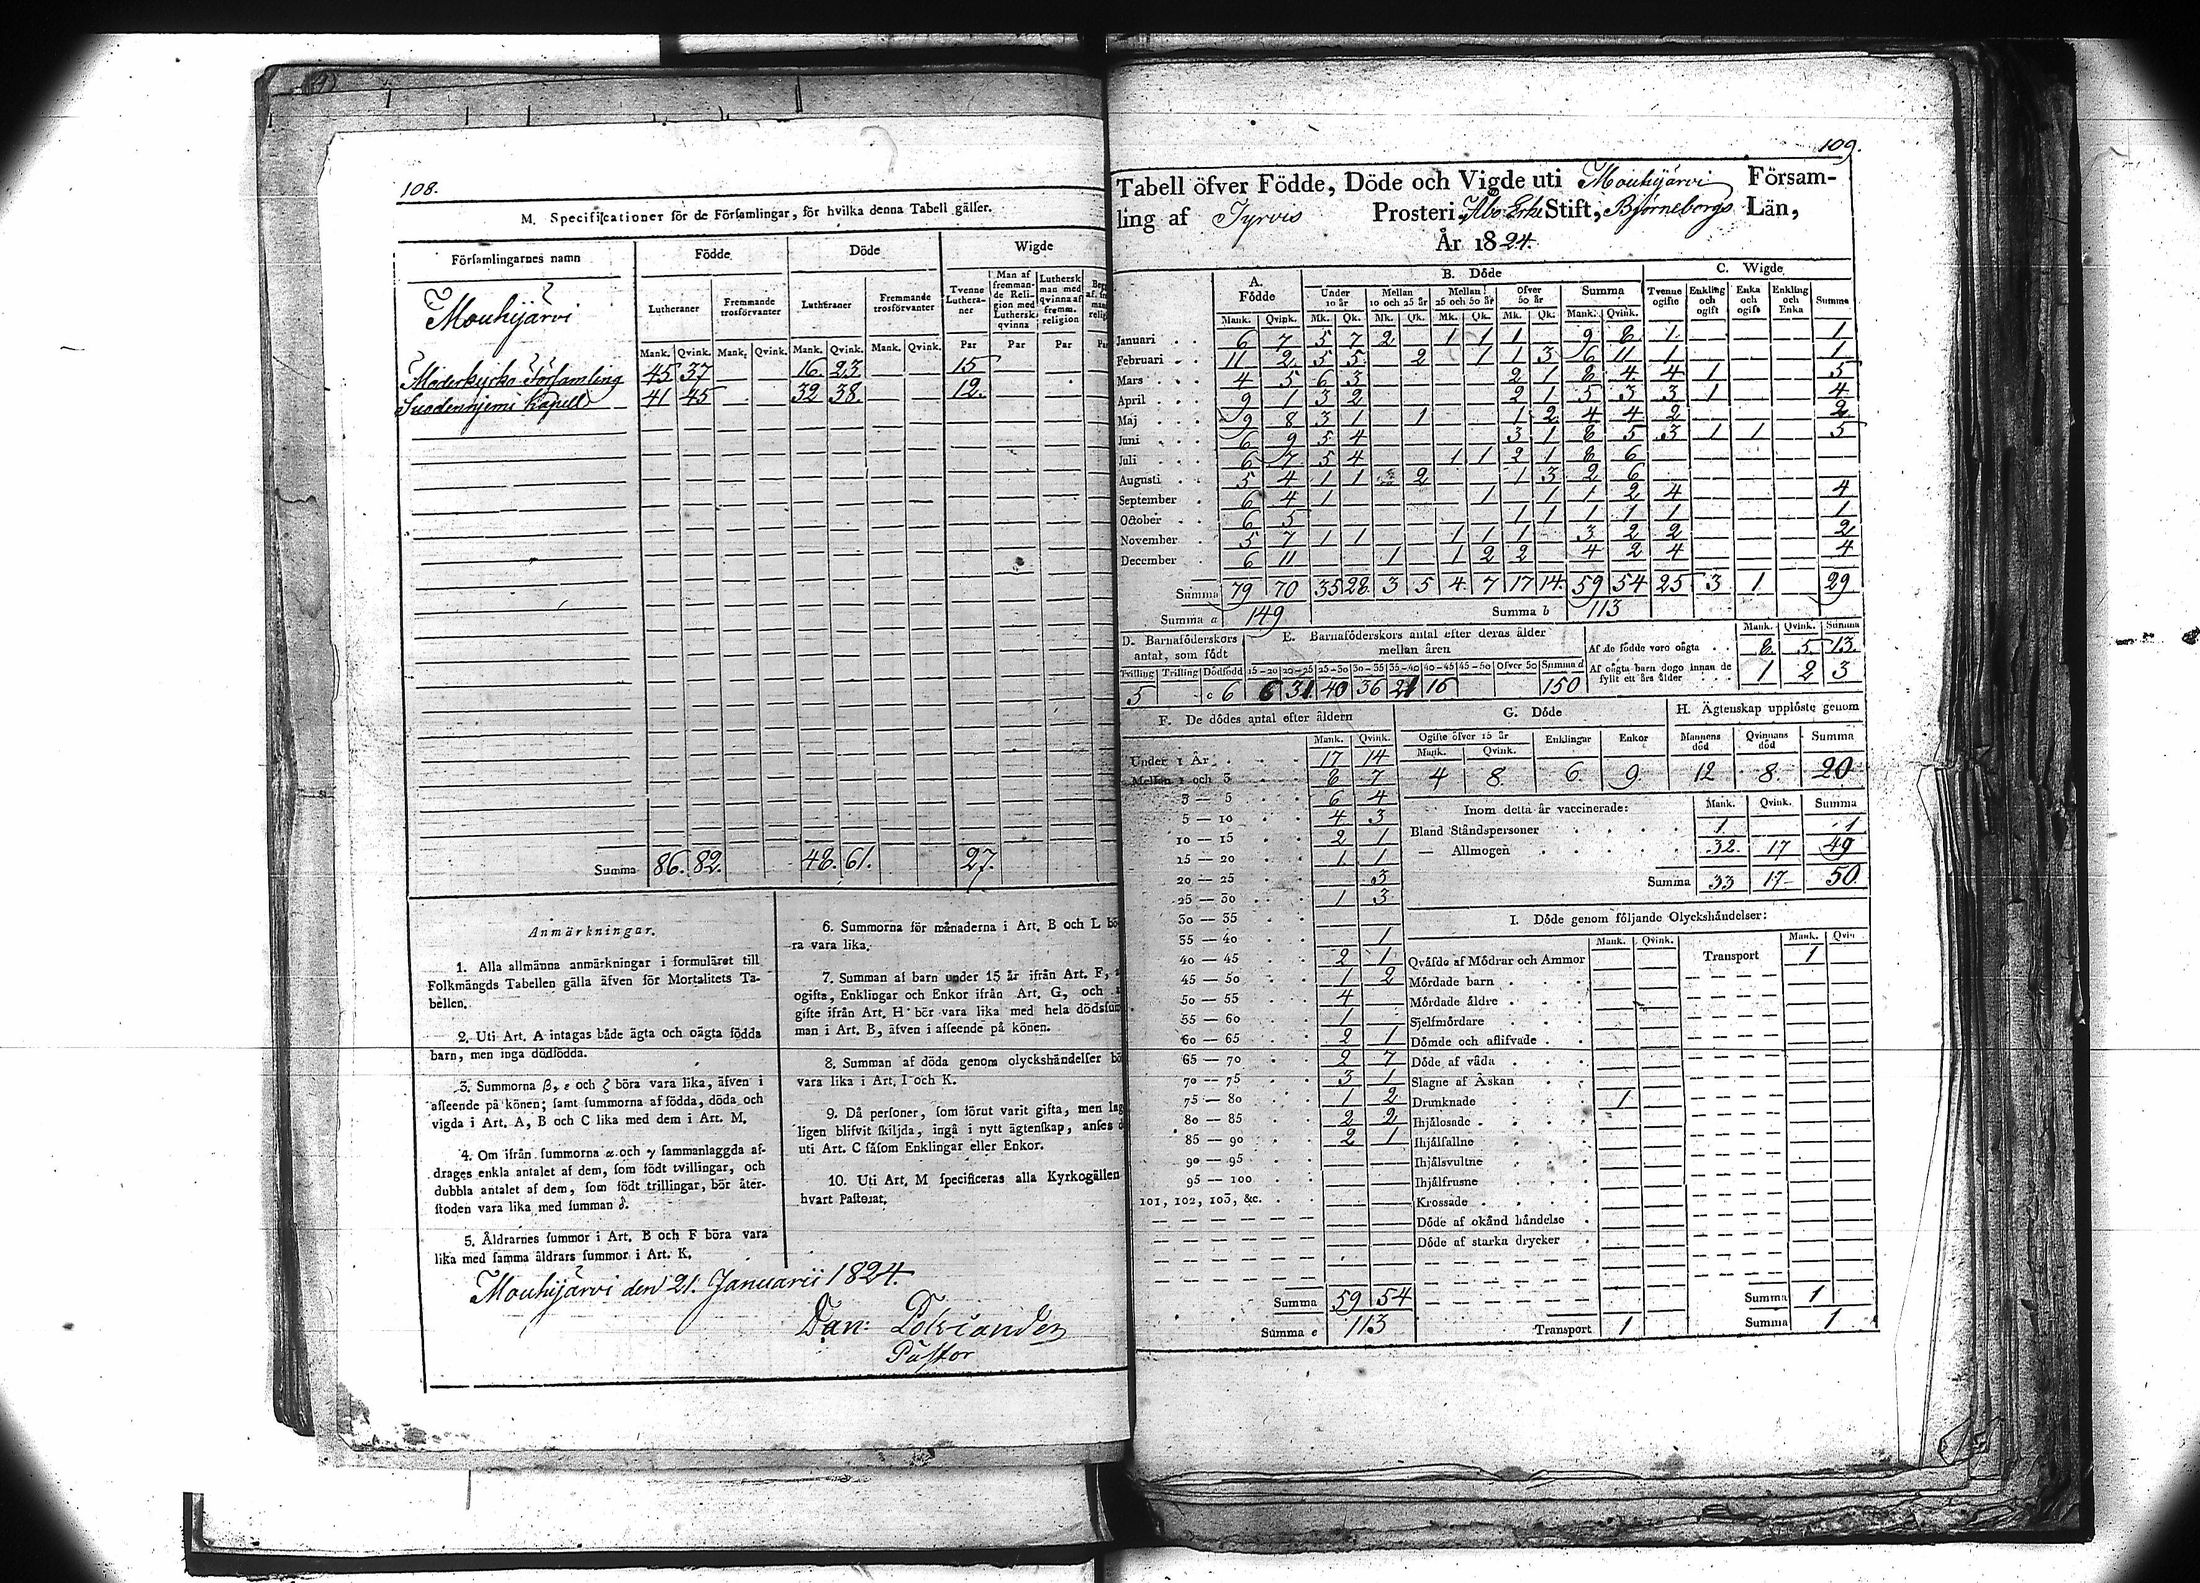 108.
M. Specificationer för de Församlingar, för hvilka denna Tabell gäller.
Församlingarnes namn | Födde | Döde | Wigde
Lutheraner | Fremmande trosförvanter | Lutheraner | Fremmande trosförvanter | Tvenne Lutheraner | Man af fremmande Religion med Luthersk qvinna | Luthersk man med qvinna af fremm. religion
Mouhijärvi
Mank. Qvink. Mank. Qvink. Mank. Qvink. Mank. Qvink. Par Par Par
Moderkyrko Församling 45 37 16 23 15
Suodenniemi Kapell 41 45 32 38 12.
Summa 86. 82. 48. 61. 27.
Anmärkningar.
1. Alla allmänna anmärkningar i formuläret till
Folkmängds Tabellen gälla äfven för Mortalitets Ta-
bellen.
2. Uti Art. A intagas både ägta och oägta födda
barn, men inga dödfödda.
3. Summorna β, ε och ζ böra vara lika, äfven i
afseende på könen; samt summorna af födda, döda och
vigda i Art. A, B och C lika med dem i Art. M.
4. Om ifrån summorna α och γ sammanlaggda af-
drages enkla antalet af dem, som födt tvillingar, och
dubbla antalet af dem, som födt trillingar, bör åter-
stoden vara lika med summan δ.
5. Åldrarnes summor i Art. B och F böra vara
lika med samma åldrars summor i Art. K.
6. Summorna för månaderna i Art. B och L bö-
ra vara lika.
7. Summan af barn under 15 år ifrån Art. F,
ogifta, Enklingar och Enkor ifrån Art. G, och
gifte ifrån Art. H bör vara lika med hela dödssum-
man i Art. B, äfven i afseende på könen.
8. Summan af döda genom olyckshändelser bö
vara lika i Art. I och K.
9. Då personer, som förut varit gifta, men lag
ligen blifvit skiljda, ingå i nytt ägtenskap, anses d
uti Art. C såsom Enklingar eller Enkor.
10. Uti Art. M specificeras alla Kyrkogällen
hvart Pastorat.
Mouhijärvi den 21. Januarii 1824.
Dan: Polviander
Pastor
109.
Tabell öfver Födde, Döde och Vigde uti Mouhijärvi Församling
af Tyrvis Prosteri, Åbo Erke Stift, Björneborgs Län,
År 1824.
A. Födde | B. Döde | C. Wigde
Under 10 år | Mellan 10 och 25 år | Mellan 25 och 50 år | Öfver 50 år | Summa | Tvenne ogifte | Enkling och ogift | Enka och ogift | Enkling och Enka | Summa
Mank. Qvink. Mk. Qk. Mk. Qk. Mk. Qk. Mk. Qk. Mank. Qvink.
Januari 6 7 5 7 2 1 1 1 9 8 1 1
Februari 11 2 5 5 2 1 1 3 6 11 1 1
Mars 4 5 6 3 2 1 8 4 4 1 5
April 9 1 3 2 2 1 5 3 3 1 4
Maj 9 8 3 1 1 1 2 4 4 2 2
Juni 6 9 5 4 3 1 8 5 3 1 1 5
Juli 6 7 5 4 1 1 2 1 8 6
Augusti 5 4 1 1 2 1 3 2 6
September 6 4 1 1 1 1 2 4 4
October 6 5 1 1 1 1 1 1
November 5 7 1 1 1 1 1 3 2 2 2
December 6 11 1 1 2 2 4 2 4 4
Summa 79 70 35 28 3 5 4 7 17 14 59 54 25 3 1 29
Summa a 149 Summa b 113
D. Barnaföderskors antal, som födt
Tvilling Trilling Dödfödd
5 c 6
E. Barnaföderskors antal efter deras ålder mellan åren
15-20 20-25 25-30 30-35 35-40 40-45 45-50 Öfver 50 Summa d
6 31 40 36 21 16 150
Mank. Qvink. Summa
Af de födde voro oägta 8 5 13.
Af oägta barn dogo innan de fyllt ett års ålder 1 2 3
F. De dödes antal efter åldern
Mank. Qvink.
Under 1 År 17 14
Mellan 1 och 3 8 7
3 — 5 6 4
5 — 10 4 3
10 — 15 2 1
15 — 20 1 1
20 — 25 3
25 — 30 1 3
30 — 35
35 — 40 1
40 — 45 2 1
45 — 50 1 2
50 — 55 4
55 — 60 1
60 — 65 2 1
65 — 70 2 7
70 — 75 3 1
75 — 80 1 2
80 — 85 2 2
85 — 90 2 1
90 — 95
95 — 100
101, 102, 103, &c.
Summa 59 54
Summa e 113
G. Döde
Ogifte öfver 15 år | Enklingar | Enkor
Mank. Qvink.
4 8. 6 9.
H. Ägtenskap upplöste genom
Mannens död | Qvinnans död | Summa
12 8. 20
Inom detta år vaccinerade: Mank. Qvink. Summa
Bland Ståndspersoner 1 1
— Allmogen 32 17 49
Summa 33 17 50
I. Döde genom följande Olyckshändelser:
Mank. Qvink. Mank. Qvin
Qväfde af Mödrar och Ammor Transport 1
Mördade barn
Mördade äldre
Sjelfmördare
Dömde och aflifvade
Döde af våda
Slagne af Åskan
Drunknade 1
Ihjälosade
Ihjälfallne
Ihjälsvultne
Ihjälfrusne
Krossade
Döde af okänd händelse
Döde af starka drycker
Summa 1
Transport 1 Summa 1